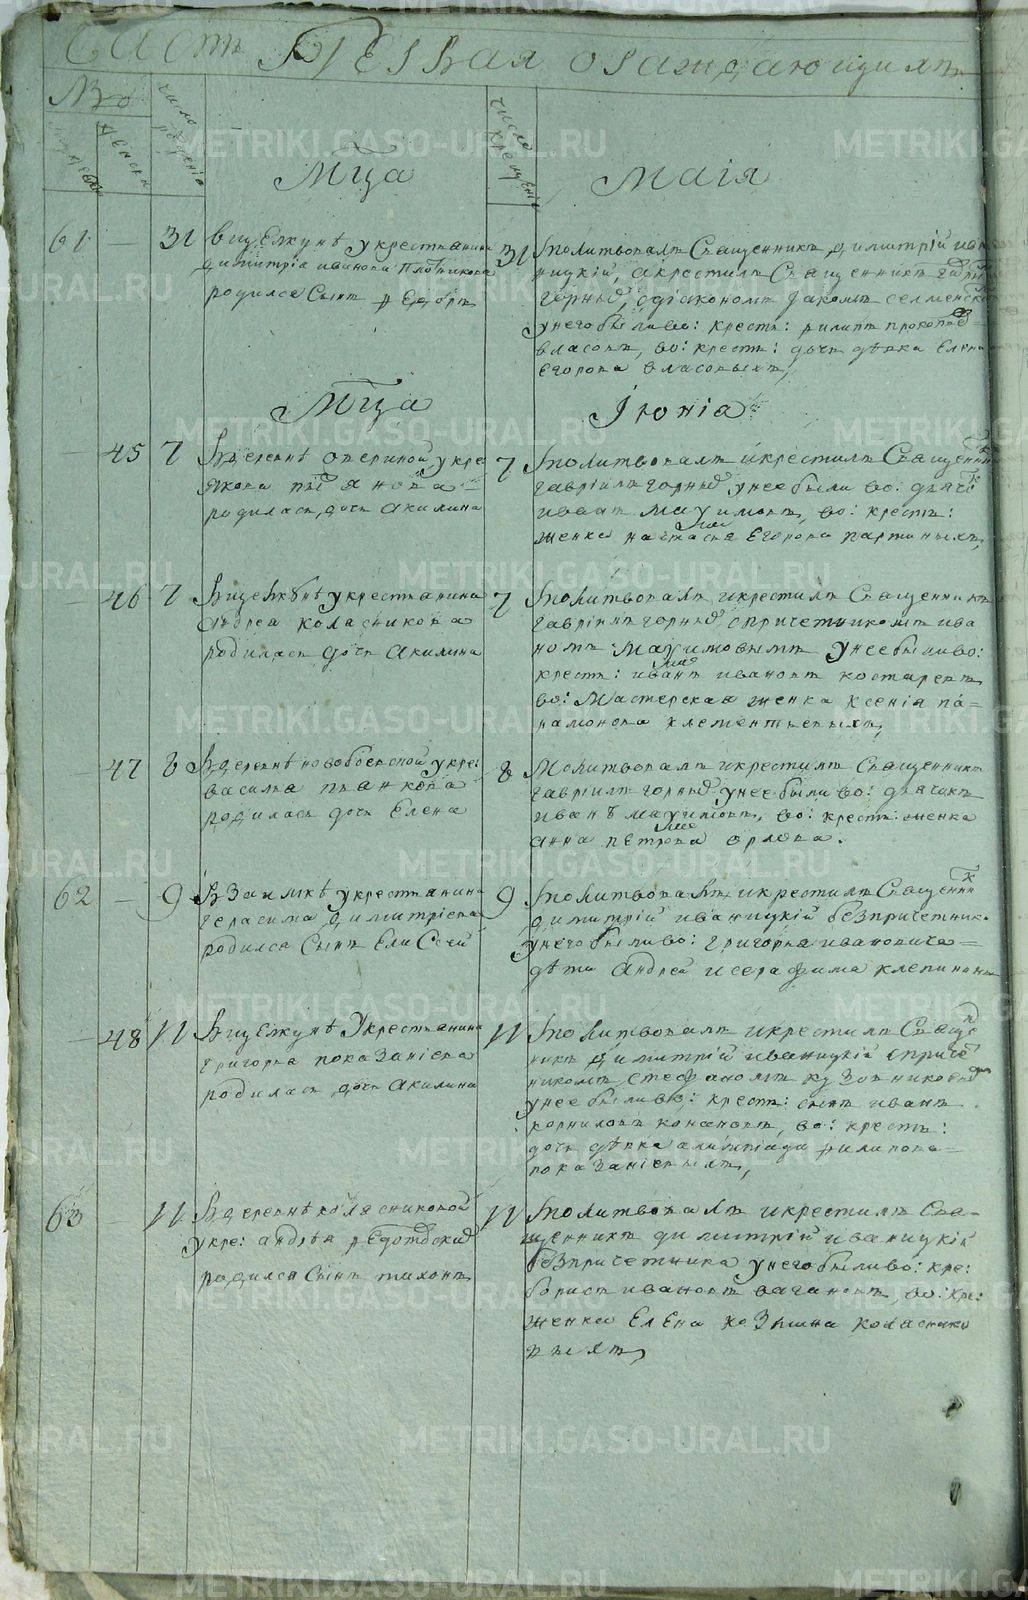 Часть Первая ораждающихся
№о
число рожденія
число крещенія
мужеска
женска
Мца
Маія
61 — 31
вищелкунѣ укрестьянина
димитріа иванова Плотникова
родился Сынъ Ѳедоръ
31
молитвовалъ Священникъ димитрій ива
ницкій, акрестилъ Священникъ Гавріи
горный, сдіакономъ
унего были во: крестъ: филипъ прокопіев
власовъ, во: крестъ: дочь дѣвка Елена
Егорова власовыхъ,
Мца
Іюнія
— 45 7
Вдеревнѣ укре
родилась дочь Акилина
7
молитвовалъ икрестилъ Священникъ
гавріилъ горный, унее были во: дьячекъ
иванъ маѯимовъ, во: крестъ:
женка настасья Егорова партиныхъ,
— 46 7
Вищелкунѣ укрестьянина
андреа коласникова
родилась дочь Акилина
7
молитвовалъ икрестилъ Священникъ
гавріилъ горный, спричетникомъ ива
номъ маѯимовымъ унее были во:
крестъ: иванъ ивановъ костаревъ
во: Мастерская женка Ксенія па=
рамонова клементьевыхъ,
— 47 8
Вдеревнѣ новобоевской укре:
василья панкова
родилась дочь Елена
8
Молитвовалъ икрестилъ Священникъ
гавріилъ горный унее были во: дьячикъ
иванъ маѯимовъ, во: крестъ: женка
анна петрова орлова.
62 — 9
ВЗаимкѣ укрестьянина
герасима димитріева
родился Сынъ Елисеей
9
молитвовалъ икрестилъ Священникъ
димитрій иваницкій безпричетника
унего были во: григорья ивановича=
дѣти Андрей исерафима клепинины
— 48 11
Вищелкунѣ Укрестьянина
григорья показаніева
родилась дочь Акилина
11
молитвовалъ икрестилъ Свяще
никъ димитрій иваницкій сприче
никомъ, стефаномъ кузовниковы
унее были во: крестъ: сынъ иванъ
корниловъ конановъ, во: крестъ:
дочь дѣвка алимпіада филипова=
показаніевыхъ,
63 — 11
Вдеревнѣ колясниковой
укре: андрея Ѳедотовских
родился Сынъ тихонъ
11
молитвовалъ икрестилъ Свя=
щенникъ димитрій иваницкій
безпричетника унего были во: кре:
борисъ ивановъ вагановъ, во: кре:
женка Елена козмина коласнико
выхъ,
METRIKI.GASO-URAL.RU